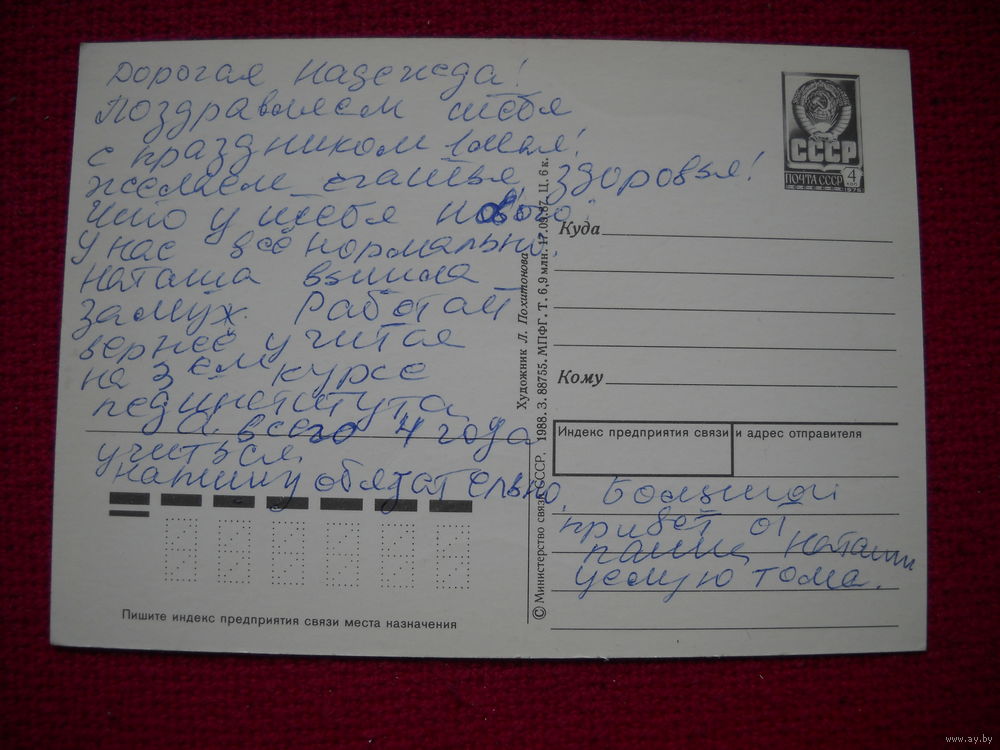 Дорогая Надежда!
Поздравляем тебя
с праздником 1 мая!
желаем счастья, здоровья!
Что у тебя нового?
У нас всё нормально,
Наташа вышла
замуж. Работает
вернее учится
на 3ем курсе
пединститута
да всего 4 года
учиться.
напишу обязательно. Большой
привет от
папы, Наташи
целую Тома.
СССР
ПОЧТА СССР 4
КОП
1978
Куда
Кому
Индекс предприятия связи и адрес отправителя
Пишите индекс предприятия связи места назначения
Художник Л. Похитонова
© Министерство связи СССР, 1988. З. 88755. МПФГ. Т. 6,9 млн. 17.09.87. Ц. 6 к.
www.ay.by